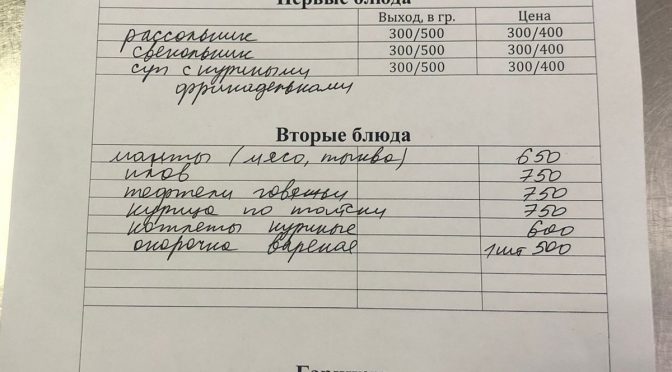 Первые блюда
Выход, в гр. Цена
рассольник 300/500 300/400
свекольник 300/500 300/400
суп с куриными 300/500 300/400
фрикадельками
Вторые блюда
манты (мясо, тыква) 650
плов 750
тефтели говяжьи 750
курица по тайски 750
котлеты куриные 600
окорочка вареная 1 шт 500